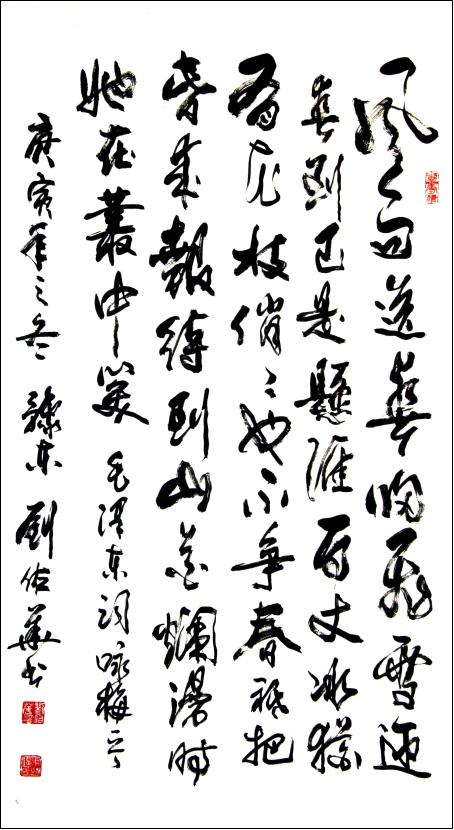 風雨送春歸飛雪迎
春到已是懸崖百丈冰猶
有花枝俏〻也不爭春祗把
春来報待到山花爛漫時
她在叢中笑 毛澤東詞咏梅一首
庚寅年之冬 東 劉佑華书